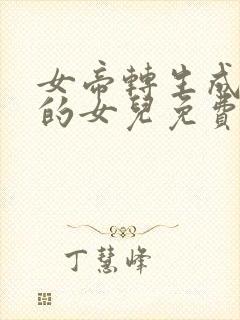 女帝轉生成
的女兒免費
丁慧峰